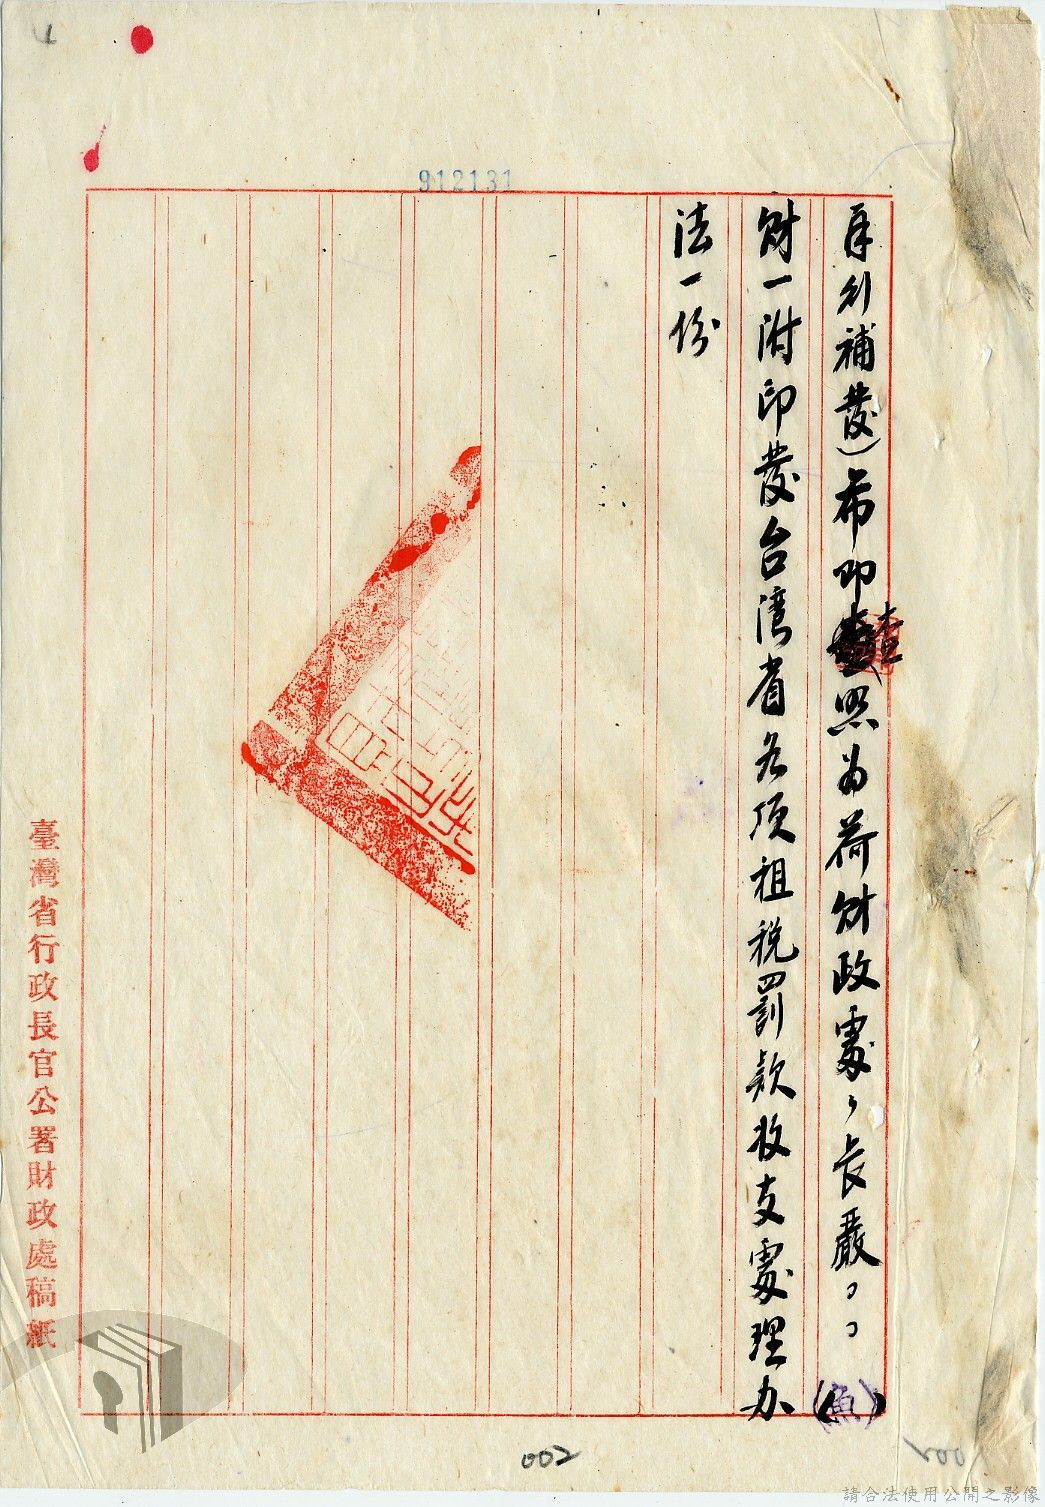 912131
再行補發）希即查照为荷財政處、長嚴。。（魚）
財一附印發台湾省各项租税罰款收支處理办
法一份
臺灣省行政長官公署財政處稿紙
002
請合法使用公開之影像